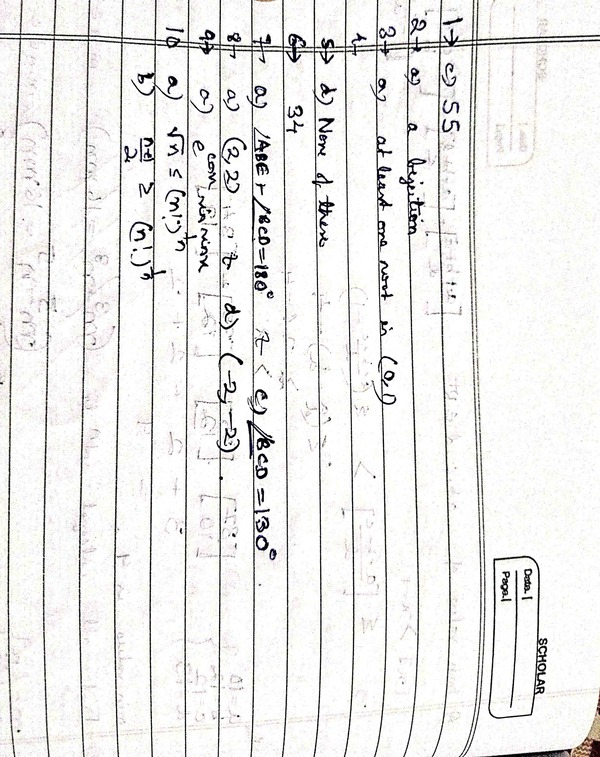 SCHOLAR
Date. |
Page. |
1→ c) 55
2→ a) a bijection
3→ a) at least one root in (0,1)
4
5→ d) None of these
6→ 34
7→ a) ∠ABE + ∠BCD = 180° c) ∠BCD = 130°
8→ a) (2,2) d) (-2,-2)
9→ a) e
10 a) √n ≤ (n!)^1/n
b) n+1/2 ≥ (n!)^1/n